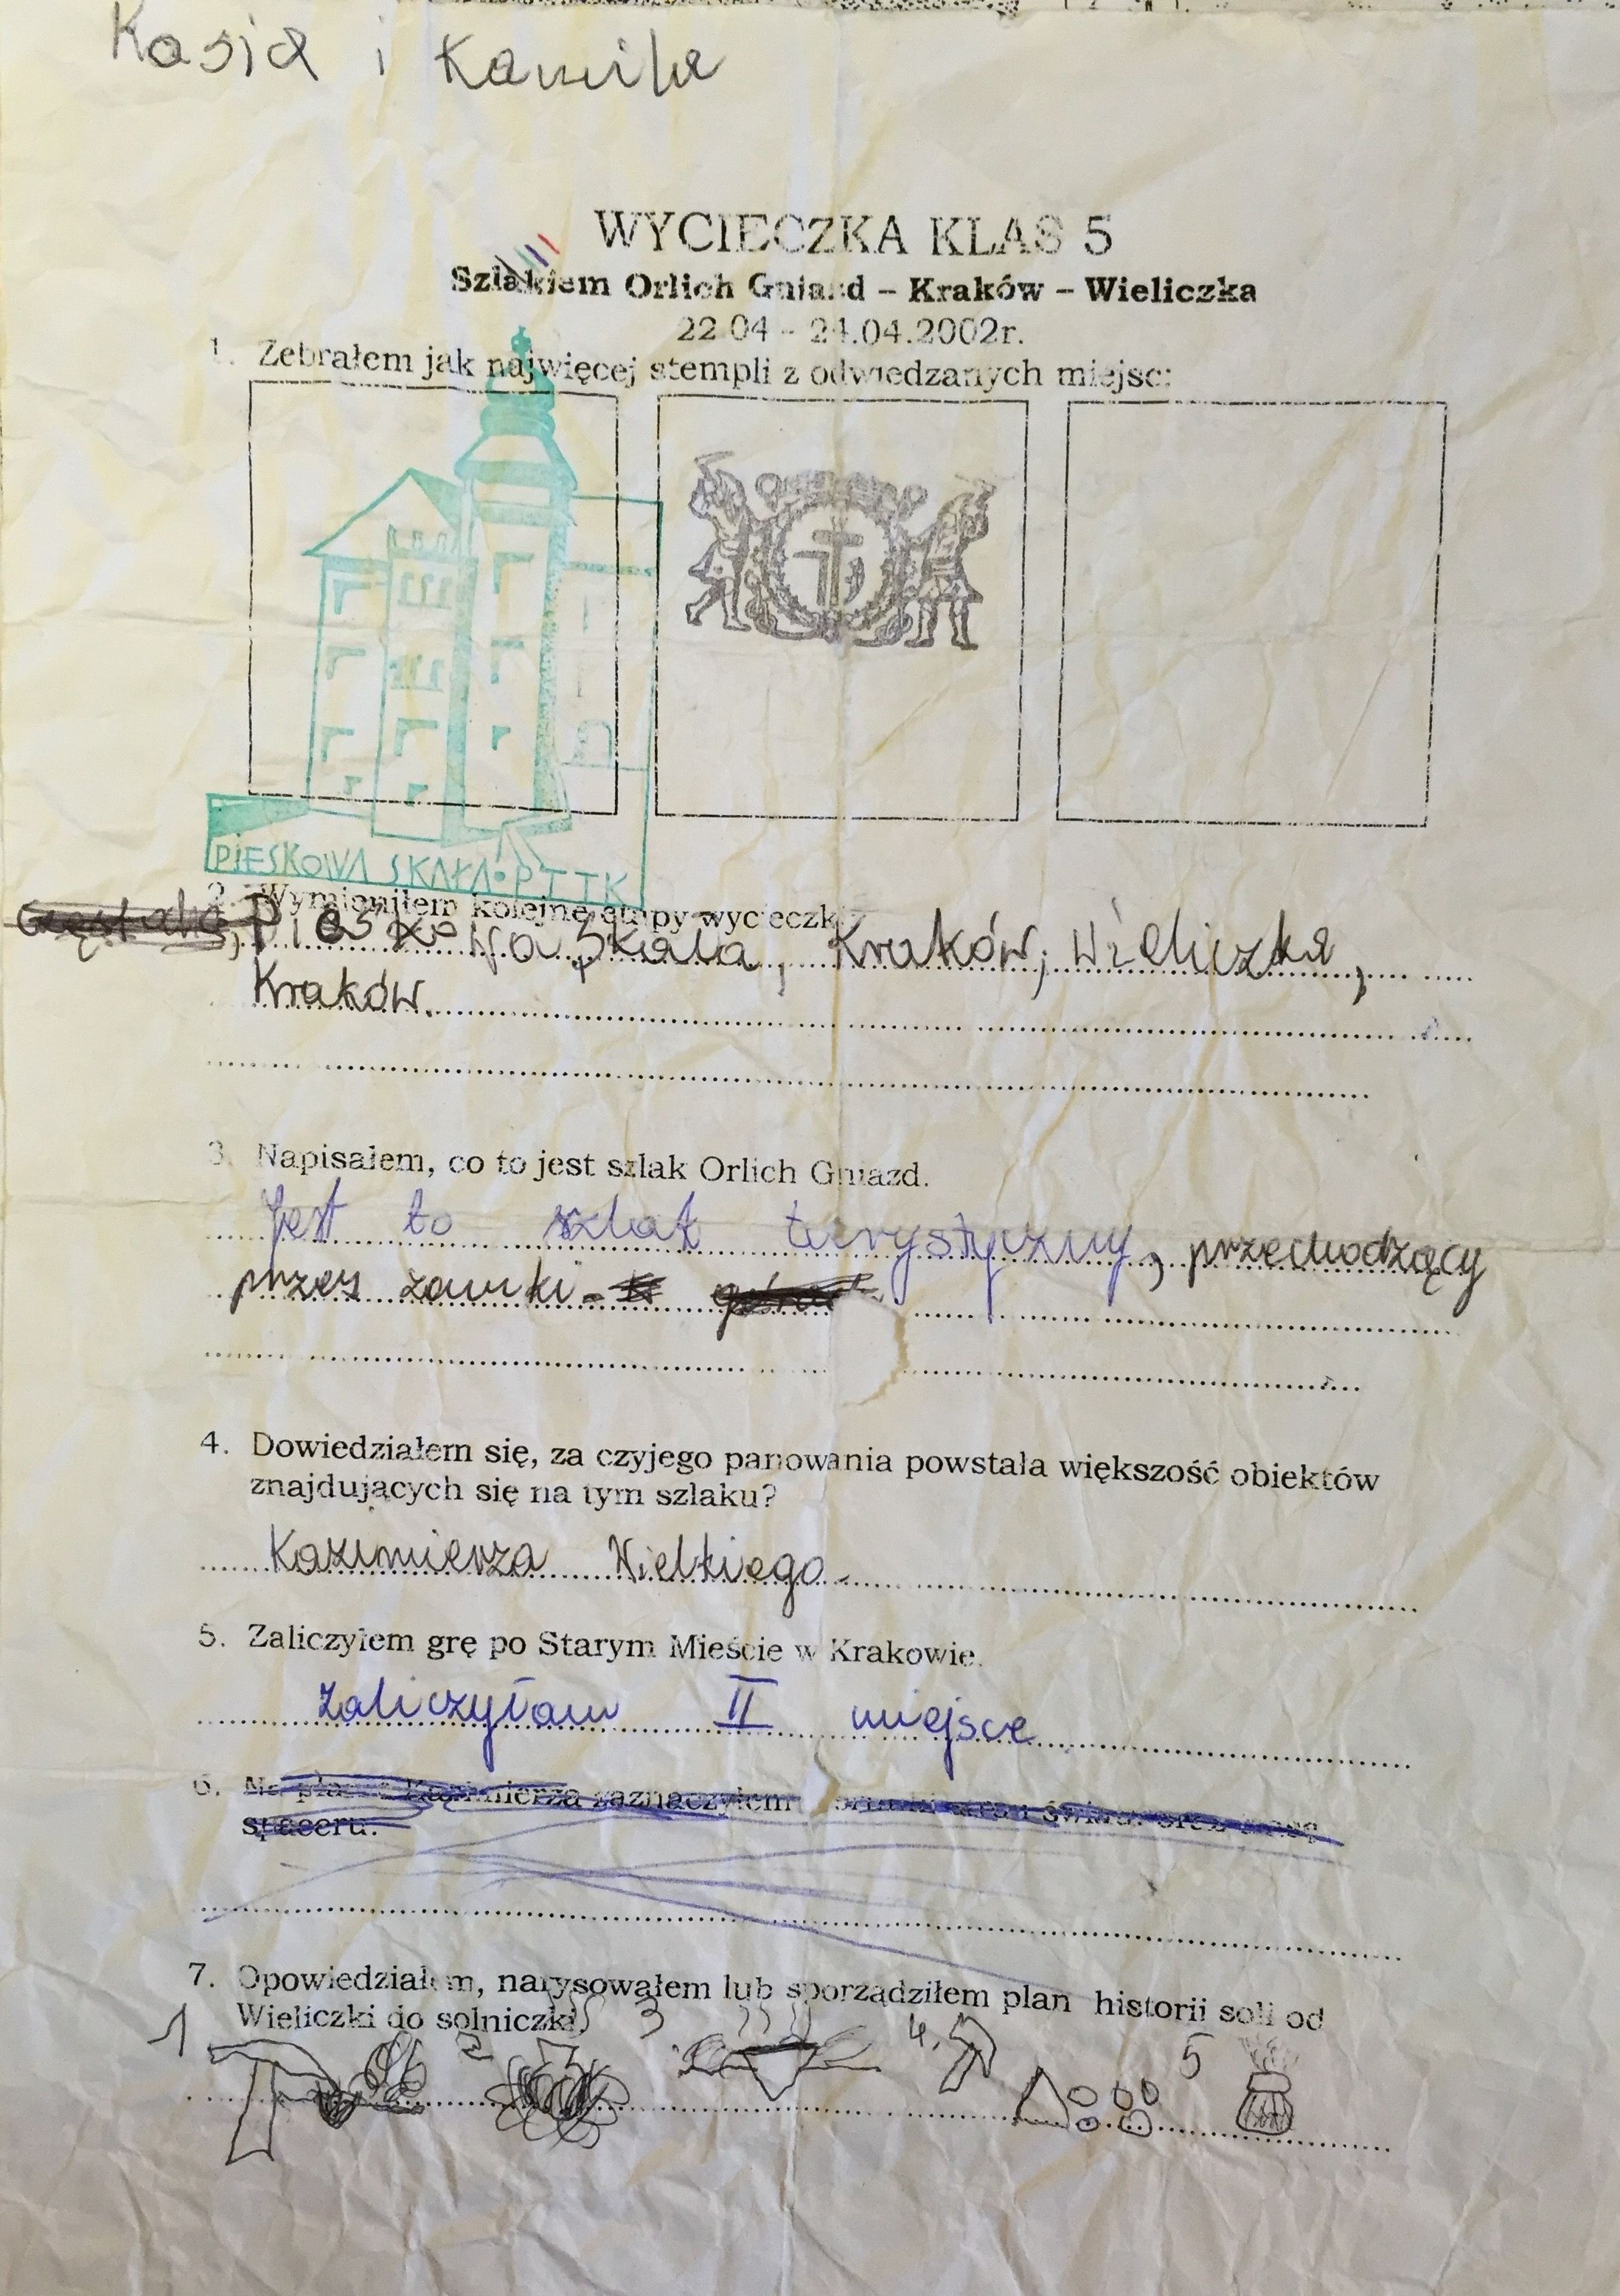 Kasia i Kamila
WYCIECZKA KLAS 5
Szlakiem Orlich Gniazd – Kraków – Wieliczka
22.04 – 24.04.2002r.
1. Zebrałem jak najwięcej stempli z odwiedzanych miejsc:
PIESKOWA SKAŁA • PTTK
2. Wymieniłem kolejne etapy wycieczki
Pieskowa Skała, Kraków, Wieliczka,
Kraków.
3. Napisałem, co to jest szlak Orlich Gniazd.
Jest to szlak turystyczny, przechodzący
przez zamki.
4. Dowiedziałem się, za czyjego panowania powstała większość obiektów
znajdujących się na tym szlaku?
Kazimierza Wielkiego.
5. Zaliczyłem grę po Starym Mieście w Krakowie.
Zaliczyłam II miejsce
6. Kazimierza zaznaczyłem
spaceru.
7. Opowiedziałem, narysowałem lub sporządziłem plan historii soli od
Wieliczki do solniczki.
1 2 3 4. 5